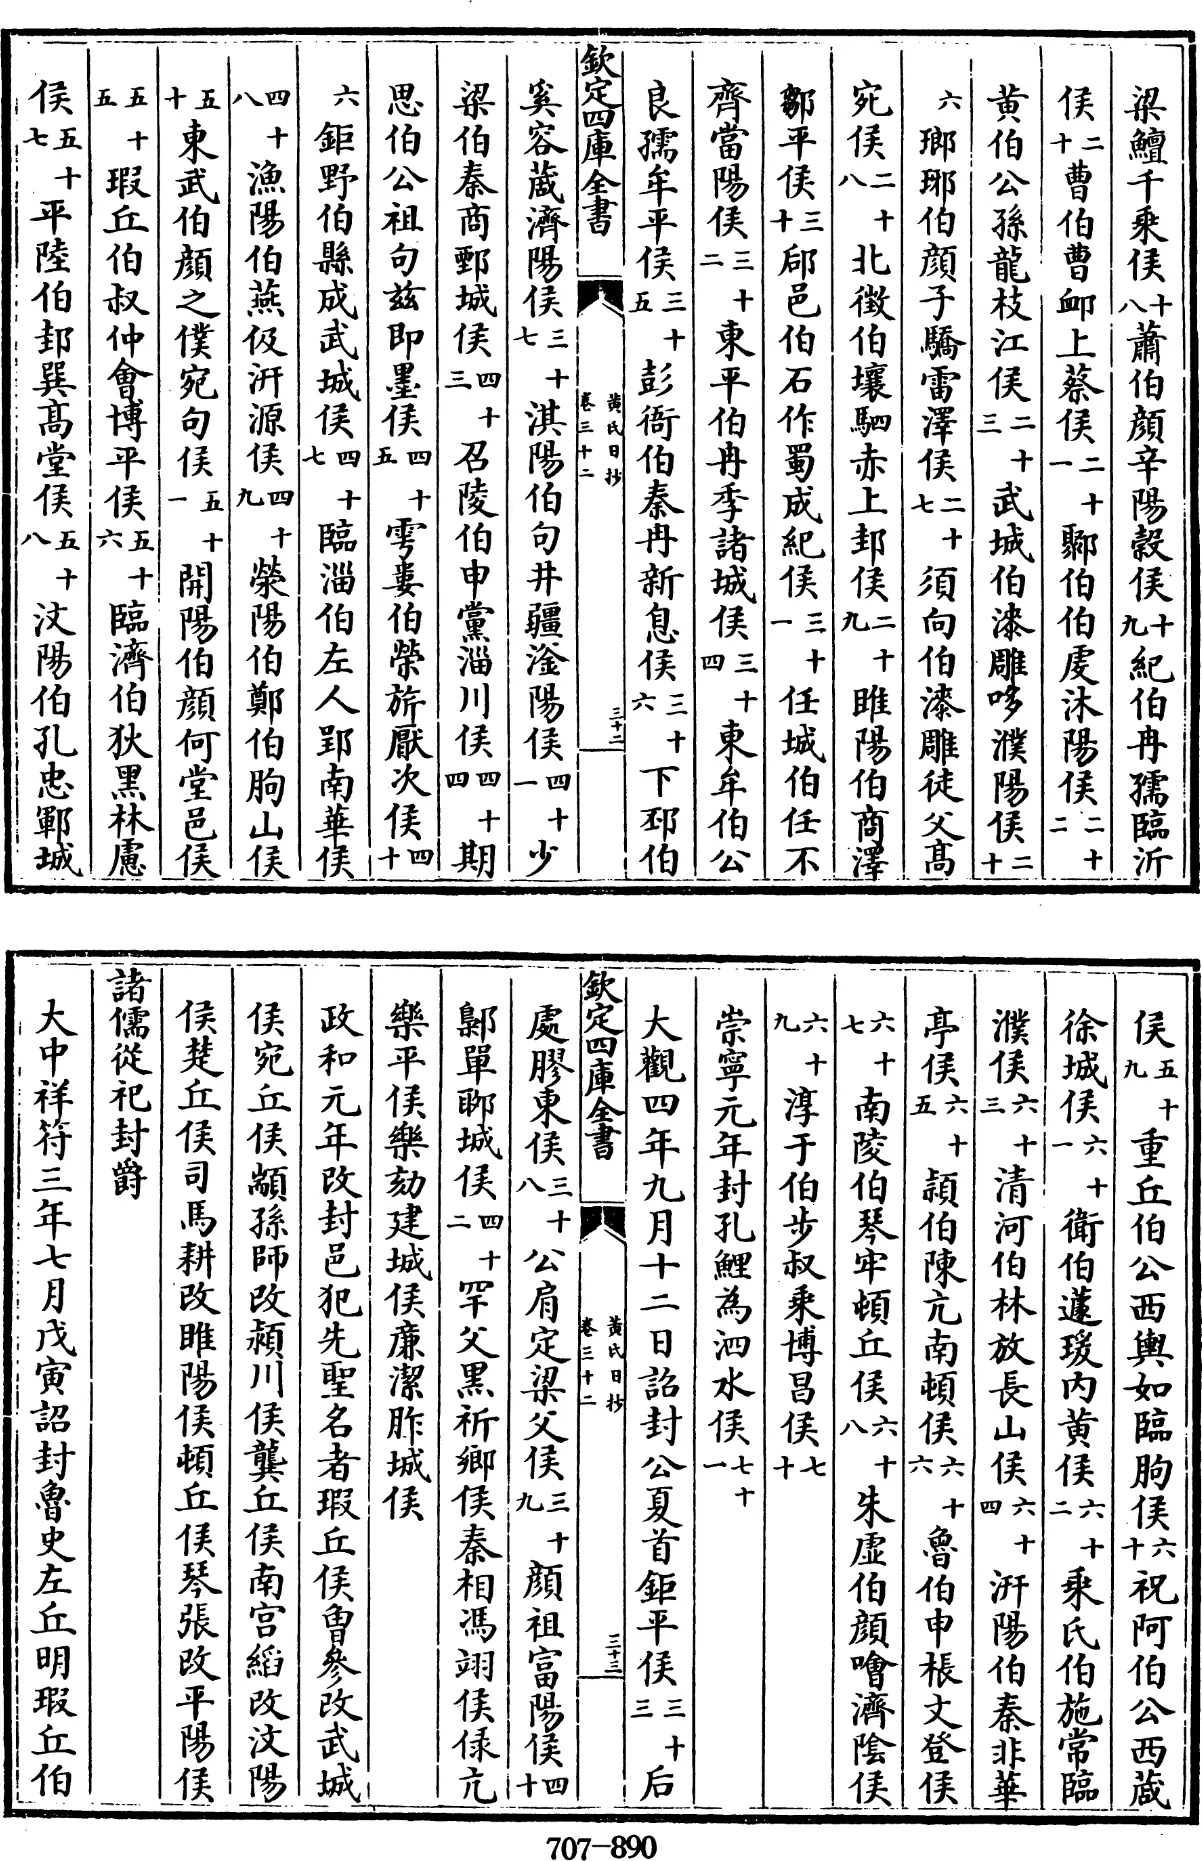 梁鱣千乘侯十八蕭伯顔辛陽穀侯十九紀伯冉孺臨沂
侯二十曹伯曹卹上蔡侯二十一鄹伯伯虔沐陽侯二十二
黄伯公孫龍枝江侯二十三武城伯漆雕哆濮陽侯二十
六瑯琊伯顔子驕雷澤侯二十七須句伯漆雕徒父髙
宛侯二十八北徴伯壤駟赤上邽侯二十九睢陽伯商澤
鄒平侯三十郈邑伯石作蜀成紀侯三十一任城伯任不
齊當陽侯三十二東平伯冉季諸城侯三十四東牟伯公
良孺牟平侯三十五彭衙伯秦冉新息侯三十六下邳伯
欽定四庫全書
黄氏日抄
卷三十二
三十二
奚容蒧濟陽侯三十七淇陽伯句井疆滏陽侯四十一少
梁伯秦商鄄城侯四十三召陵伯申黨淄川侯四十四期
思伯公祖句兹即墨侯四十五雩婁伯榮旂厭次侯四十
六鉅野伯縣成武城侯四十七臨淄伯左人郢南華侯
四十八漁陽伯燕伋汧源侯四十九滎陽伯鄭伯朐山侯
五十東武伯顔之僕宛句侯五十一開陽伯顔何堂邑侯
五十五瑕丘伯叔仲㑹博平侯五十六臨濟伯狄黒林慮
侯五十七平陸伯邽巽髙堂侯五十八汶陽伯孔忠鄆城
侯五十九重丘伯公西輿如臨朐侯六十祝阿伯公西蒧
徐城侯六十一衛伯蘧瑗内黄侯六十二乘氏伯施常臨
濮侯六十三清河伯林放長山侯六十四汧陽伯秦非華
亭侯六十五潁伯陳亢南頓侯六十六魯伯申棖文登侯
六十七南陵伯琴牢頓丘侯六十八朱虚伯顔噲濟隂侯
六十九淳于伯步叔乘博昌侯七十
崇寧元年封孔鯉為泗水侯七十一
大觀四年九月十二日詔封公夏首鉅平侯三十三后
欽定四庫全書
黄氏日抄
卷三十二
三十三
處膠東侯三十八公肩定梁父侯三十九顔祖富陽侯四十
鄡單聊城侯四十二罕父黒祈鄉侯秦相馮翊侯原亢
樂平侯樂欬建城侯廉潔胙城侯
政和元年改封邑犯先聖名者瑕丘侯曽參改武城
侯宛丘侯顓孫師改潁川侯龔丘侯南宫縚改汶陽
侯楚丘侯司馬耕改睢陽侯頓丘侯琴張改平陽侯
諸儒從祀封爵
大中祥符三年七月戊寅詔封魯史左丘明瑕丘伯
707-890